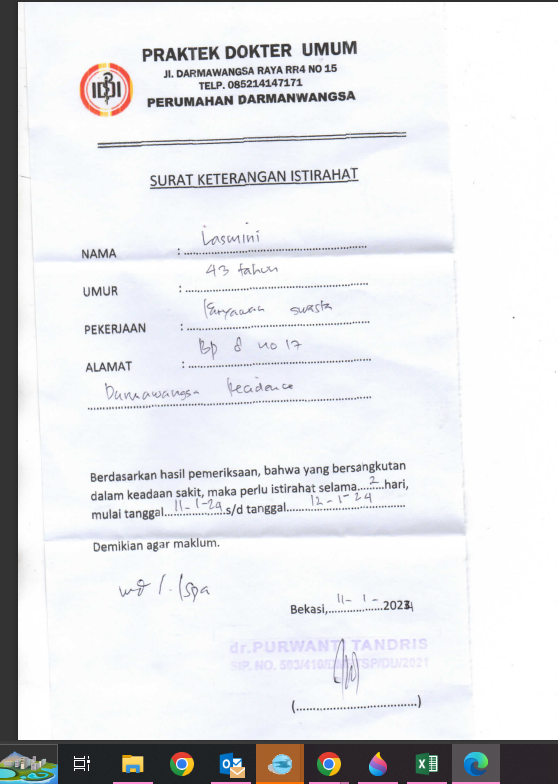 PRAKTEK DOKTER UMUM
JL. DARMAWANGSA RAYA RR4 NO 15
TELP. 085214147171
PERUMAHAN DARMANWANGSA
IDI
SURAT KETERANGAN ISTIRAHAT
NAMA : Lasmini
UMUR : 43 tahun
PEKERJAAN : Karyawan swasta
ALAMAT : Bp 8 no 17
Darmawangsa Recidence
Berdasarkan hasil pemeriksaan, bahwa yang bersangkutan
dalam keadaan sakit, maka perlu istirahat selama....2...hari,
mulai tanggal 11-1-24 s/d tanggal 12-1-24
Demikian agar maklum.
Bekasi, 11-1-2024
dr.PURWANTI TANDRIS
SIP. NO. 503/410/
(....................................)